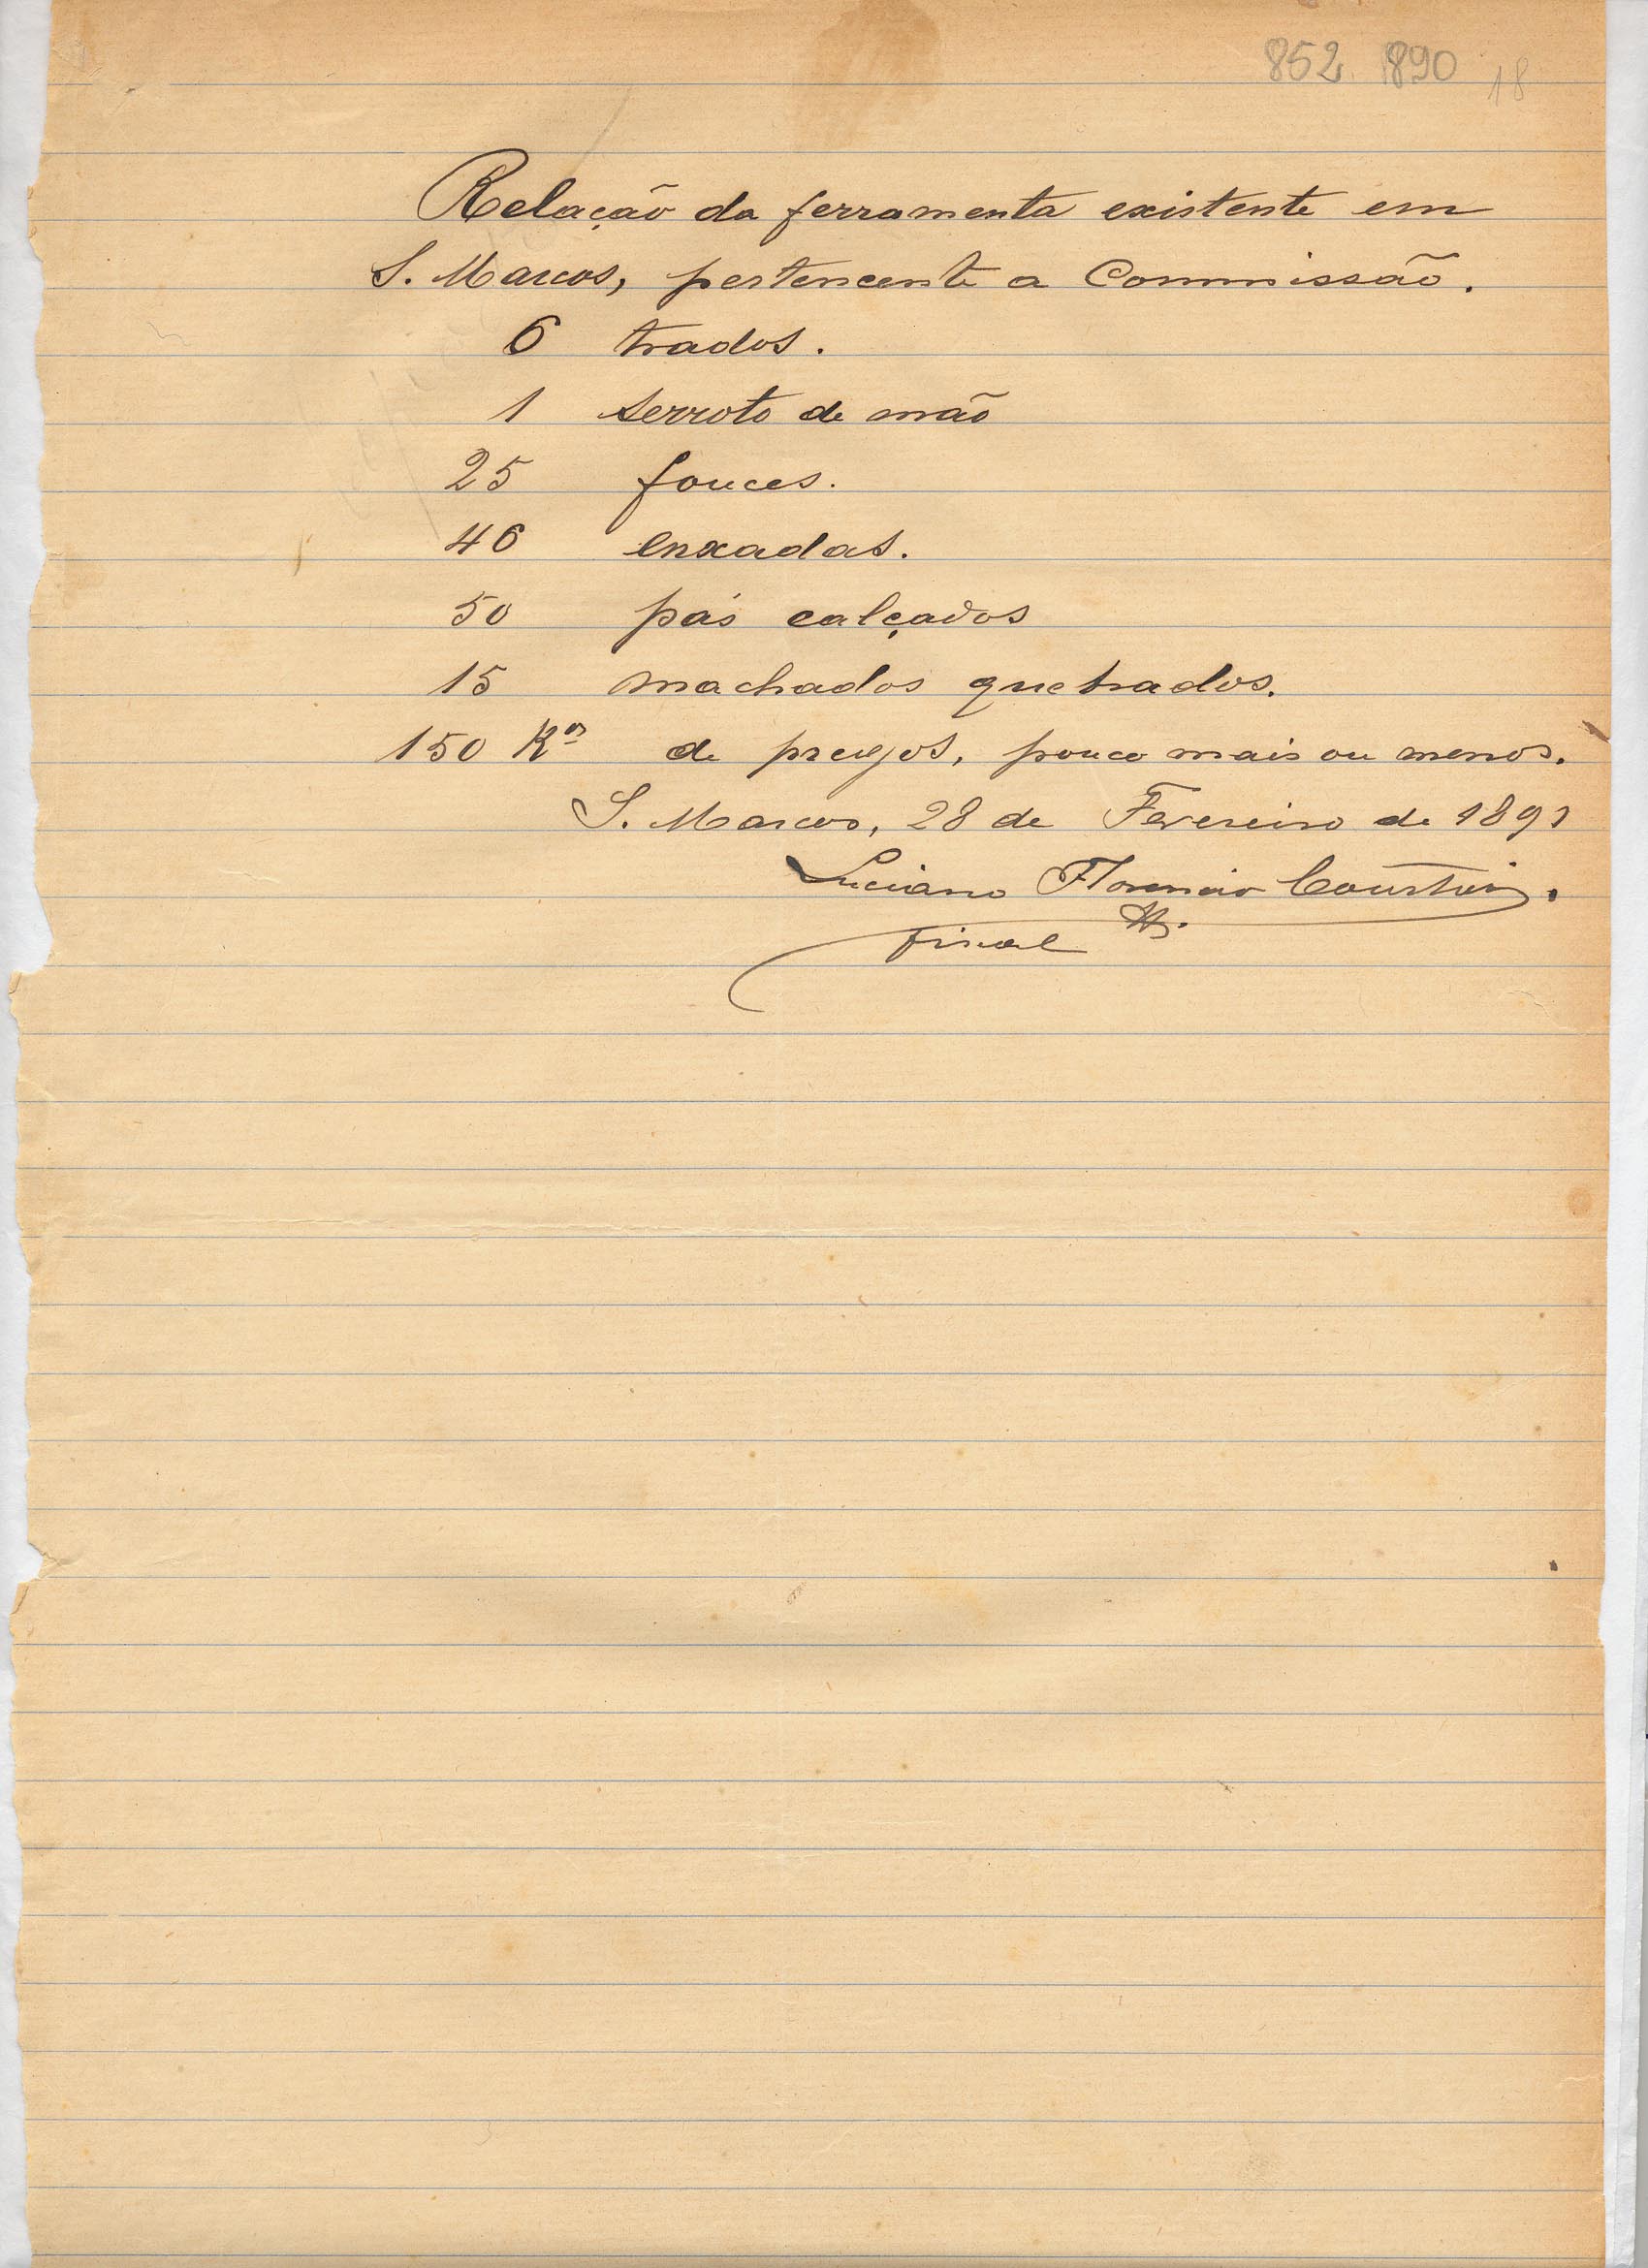 852 1890 18
Relação da ferramenta existente em
S. Marcos, pertencente a Commissão.
6 trados.
1 serroto de mão
25 fouces.
46 enxadas.
50 pás calçados
15 machados quebrados.
150 Kos de pregos, pouco mais ou menos.
S. Marcos, 28 de Fevereiro de 1891
Luciano Florencio
Fiscal